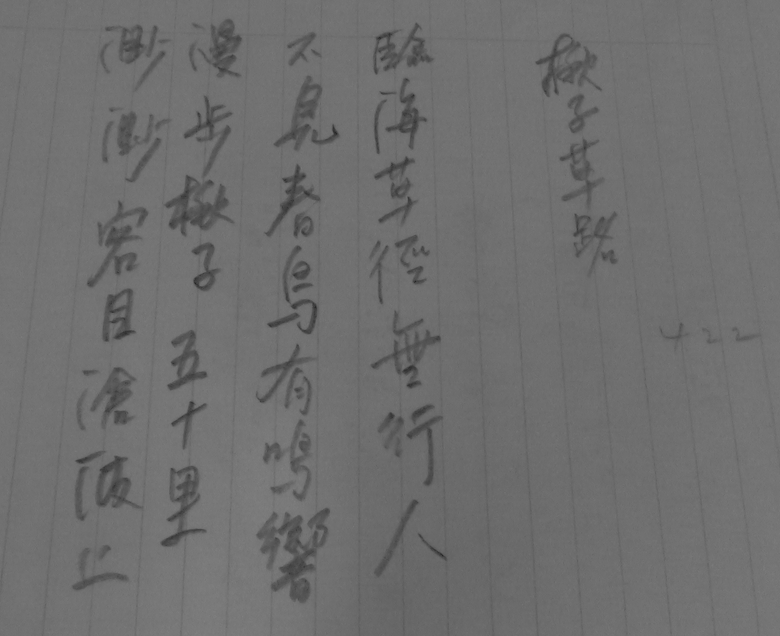 楸子草路
422
臨海草徑無行人
不見春鳥有鳴響
漫步楸子五十里
渺渺客目滄波上